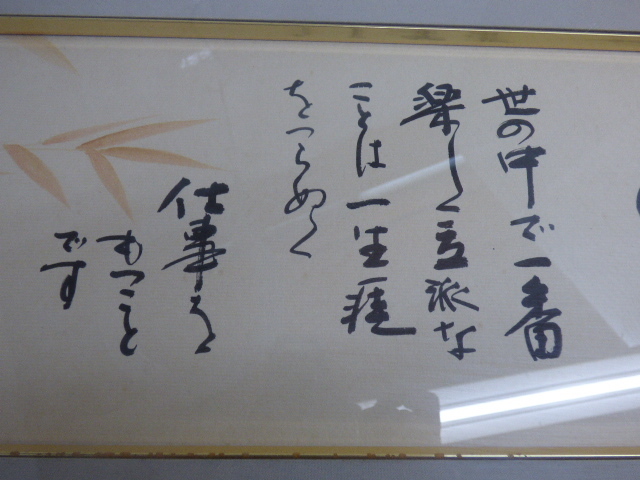 世の中で一番
楽しく立派な
ことは一生涯
をつらぬく
仕事を
もつこと
です